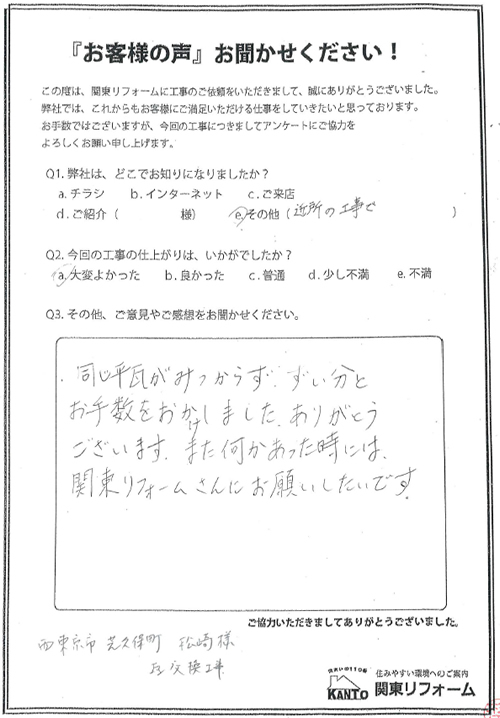 『お客様の声』お聞かせください!
この度は、関東リフォームに工事のご依頼をいただきまして、誠にありがとうございました。
弊社では、これからもお客様にご満足いただける仕事をしていきたいと思っております。
お手数ではございますが、今回の工事につきましてアンケートにご協力を
よろしくお願い申し上げます。
Q1. 弊社は、どこでお知りになりましたか?
a. チラシ b. インターネット c. ご来店
d. ご紹介( 様) e. その他(近所の工事で )
Q2. 今回の工事の仕上がりは、いかがでしたか?
a. 大変よかった b. 良かった c. 普通 d. 少し不満 e. 不満
Q3. その他、ご意見やご感想をお聞かせください。
同じ平瓦がみつからず、ずい分と
お手数をおかけしました。ありがとう
ございます。また何かあった時には、
関東リフォームさんにお願いしたいです。
ご協力いただきましてありがとうございました。
西東京市 芝久保町 松崎様
瓦交換工事
住まいの110番
KANTO
住みやすい環境へのご案内
関東リフォーム